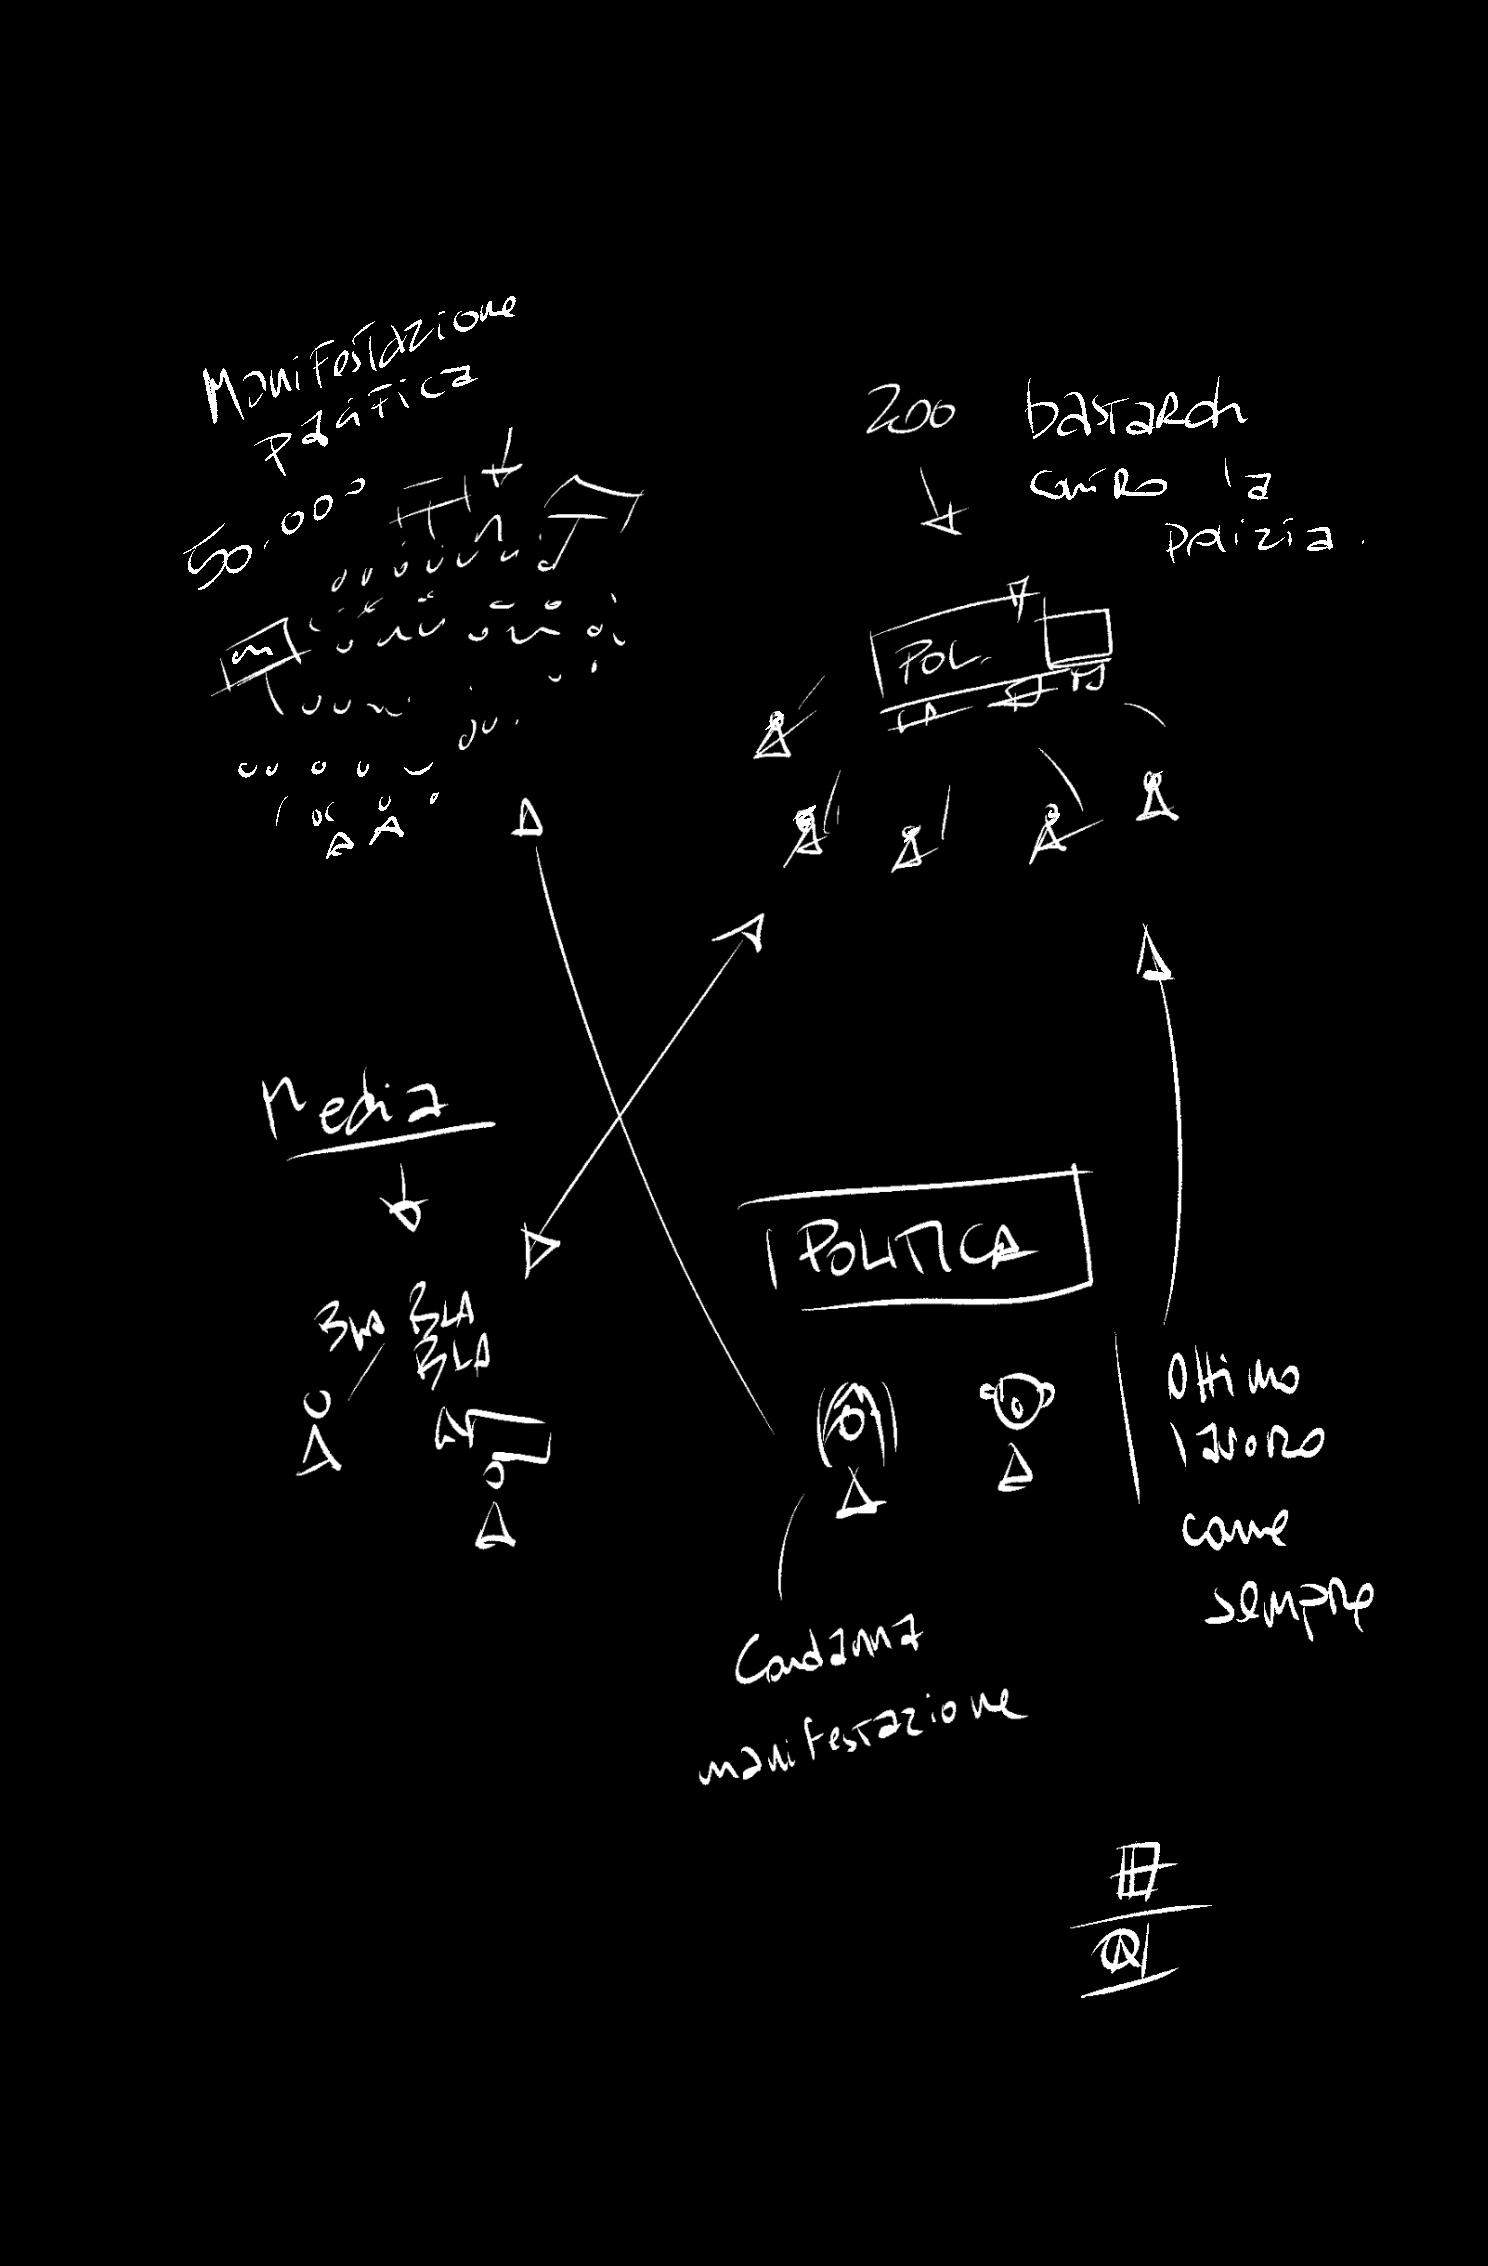 Manifestazione
pacifica
50.000
200 bastardi
contro la
polizia.
POL.
Media
BLA BLA
BLA
POLITICA
Ottimo
lavoro
come
sempre
Condanna
manifestazione